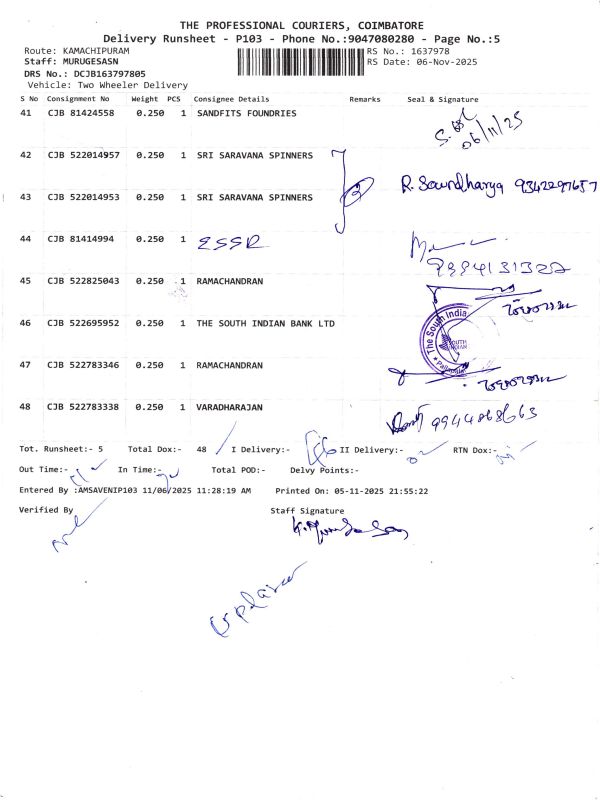 THE PROFESSIONAL COURIERS, COIMBATORE
Delivery Runsheet - P103 - Phone No.:9047080280 - Page No.:5
Route: KAMACHIPURAM RS No.: 1637978
Staff: MURUGESASN RS Date: 06-Nov-2025
DRS No.: DCJB163797805
Vehicle: Two Wheeler Delivery
S No Consignment No Weight PCS Consignee Details Remarks Seal & Signature
41 CJB 81424558 0.250 1 SANDFITS FOUNDRIES
06/11/25
42 CJB 522014957 0.250 1 SRI SARAVANA SPINNERS
R. Soundharya 9342297657
43 CJB 522014953 0.250 1 SRI SARAVANA SPINNERS
44 CJB 81414994 0.250 1 ESSR
9994131322
45 CJB 522825043 0.250 1 RAMACHANDRAN
46 CJB 522695952 0.250 1 THE SOUTH INDIAN BANK LTD
The South India
SOUTH
INDIAN
47 CJB 522783346 0.250 1 RAMACHANDRAN
48 CJB 522783338 0.250 1 VARADHARAJAN
9944868663
Tot. Runsheet:- 5 Total Dox:- 48 I Delivery:- II Delivery:- RTN Dox:-
Out Time:- In Time:- Total POD:- Delvy Points:-
Entered By :AMSAVENIP103 11/06/2025 11:28:19 AM Printed On: 05-11-2025 21:55:22
Verified By Staff Signature